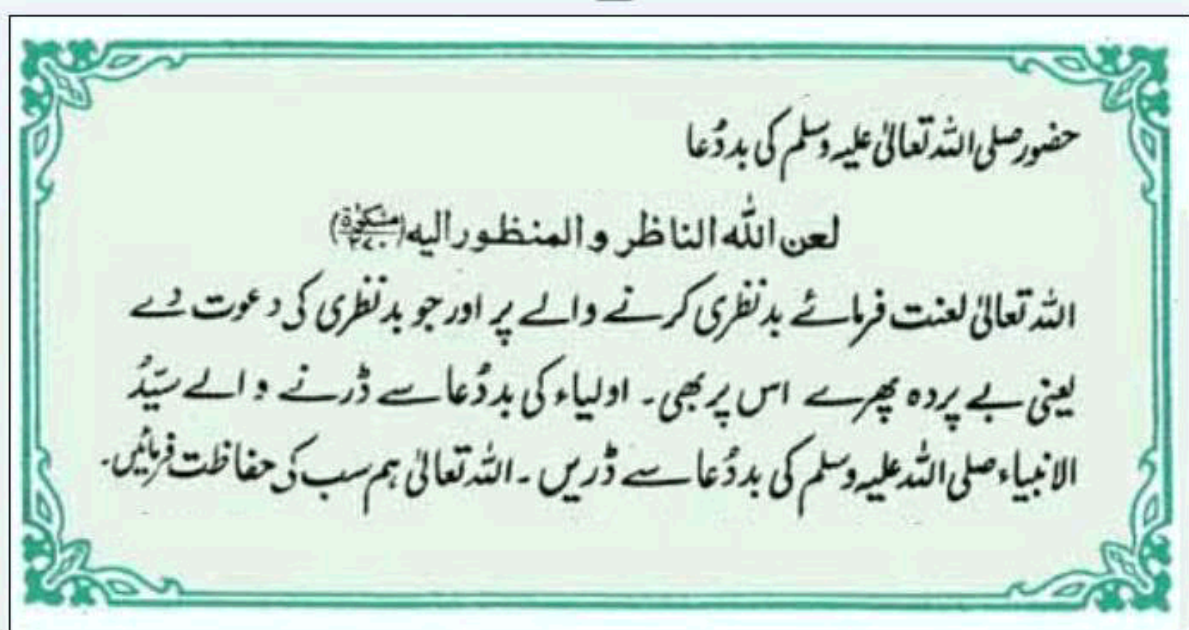 حضور صلی اللہ تعالیٰ علیہ وسلم کی بددُعا
لعن اللہ الناظر و المنظور الیه (مشکوٰۃ ۲۷۰)
اللہ تعالیٰ لعنت فرمائے بدنظری کرنے والے پر اور جو بدنظری کی دعوت دے
یعنی بے پردہ پھرے اس پر بھی۔ اولیاء کی بددُعا سے ڈرنے والے سیّدُ
الانبیاء صلی اللہ علیہ وسلم کی بددُعا سے ڈریں۔ اللہ تعالیٰ ہم سب کی حفاظت فرمائیں۔